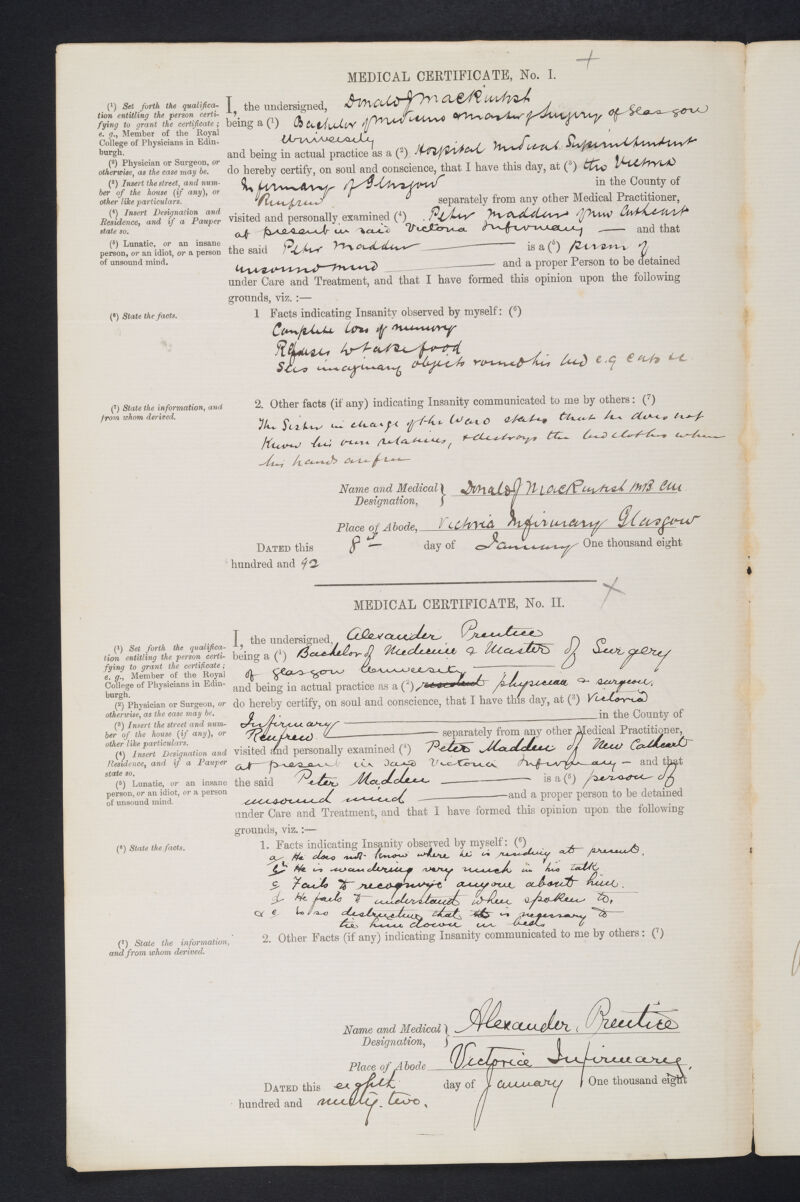 MEDICAL CERTIFICATE, No. I.
(¹) Set forth the qualifica-
tion entitling the person certi-
fying to grant the certificate;
e. g., Member of the Royal
College of Physicians in Edin-
burgh.
(²) Physician or Surgeon, or
otherwise, as the case may be.
(³) Insert the street, and num-
ber of the house (if any), or
other like particulars.
(⁴) Insert Designation and
Residence, and if a Pauper
state so.
(⁵) Lunatic, or an insane
person, or an idiot, or a person
of unsound mind.
I, the undersigned, Donald J Mackintosh
being a (¹) Bachelor of Medicine & Master of Surgery of Glasgow
University
and being in actual practice as a (²) Hospital Medical Superintendent
do hereby certify, on soul and conscience, that I have this day, at (³) the Victoria
Infirmary of Glasgow in the County of
Renfrew separately from any other Medical Practitioner,
visited and personally examined (⁴) Peter Madden of New Cathcart
at present in said Victoria Infirmary — and that
the said Peter Madden is a (⁵) person of
unsound mind and a proper Person to be detained
under Care and Treatment, and that I have formed this opinion upon the following
grounds, viz. :—
(⁶) State the facts.
1 Facts indicating Insanity observed by myself: (⁶)
Complete loss of memory
Refuses to take food
Sees imaginary objects round his bed e.g cats &c
(⁷) State the information, and
from whom derived.
2. Other facts (if any) indicating Insanity communicated to me by others: (⁷)
The Sister in charge of the Ward states that he does not
know his own relatives, & destroys the bedclothes when
his hands are free
Name and Medical Designation, Donald J Mackintosh MB CM
Place of Abode, Victoria Infirmary Glasgow
DATED this 8th day of January One thousand eight
hundred and 92
MEDICAL CERTIFICATE, No. II.
(¹) Set forth the qualifica-
tion entitling the person certi-
fying to grant the certificate;
e. g., Member of the Royal
College of Physicians in Edin-
burgh.
(²) Physician or Surgeon, or
otherwise, as the case may be.
(³) Insert the street and num-
ber of the house (if any), or
other like particulars.
(⁴) Insert Designation and
Residence, and if a Pauper
state so.
(⁵) Lunatic, or an insane
person, or an idiot, or a person
of unsound mind.
I, the undersigned, Alexander Prentice
being a (¹) Bachelor of Medicine & Master of Surgery
of Glasgow University
and being in actual practice as a (²) physician & surgeon.
do hereby certify, on soul and conscience, that I have this day, at (³) Victoria
Infirmary in the County of
Renfrew separately from any other Medical Practitioner,
visited and personally examined (⁴) Peter Madden of New Cathcart
at present in said Victoria Infirmary — and that
the said Peter Madden is a (⁵) person of
unsound mind and a proper person to be detained
under Care and Treatment, and that I have formed this opinion upon the following
grounds, viz. :—
(⁶) State the facts.
1. Facts indicating Insanity observed by myself: (⁶)
a He does not know where he is residing at present.
b He is wandering very much in his talk
c Fails to recognize anyone about him.
d He fails to understand when spoken to.
& e is so destructive that it is necessary to
tie him down in bed
(⁷) State the information,
and from whom derived.
2. Other Facts (if any) indicating Insanity communicated to me by others: (⁷)
Name and Medical Designation, Alexander Prentice
Place of Abode Victoria Infirmary.
DATED this eighth day of January One thousand eight
hundred and ninety-two.